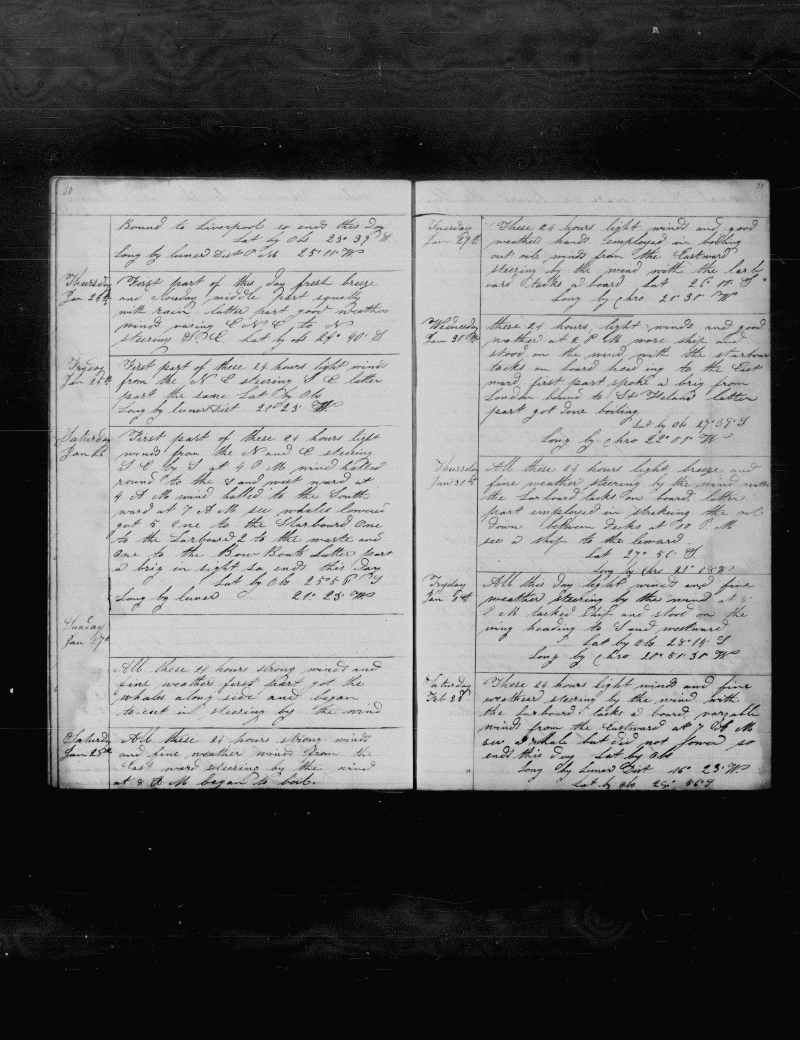 50
Bound to Liverpool so ends this day
Lat by Obs 23° 39' S
Long by luner Dist P M 25° 11' W
Thursday
Jan 24th
First part of this day fresh breeze
and cloudy middle part squally
with rain latter part good weather
winds varing E N E to N
steering S E Lat by obs 24° 40' S
Fryday
Jan 25th
First part of these 24 hours light wind
from the N E steering S E latter
part the same Lat by Obs
Long by luner Dist 21° 23' W
Saturday
Jan 26
First part of these 24 hours light
winds from the N and E steering
S E by S at 4 P M wind halled
round to the S and west ward at
4 A M wind halled to the South
ward at 7 A M see whales lowered
got 5 One to the Starboard One
to the Larboard 2 to the waste and
One to the Bow Boat Latter part
a brig in sight so ends this day
Lat by Obs 25° 56' S
Long by luner 21° 23' W
Sunday
Jan 27th
All these 24 hours strong winds and
fine weather first part got the
whales along side and began
to cut in steering by the wind
Saturd
Jan 28th
All these 24 hours strong winds
and fine weather winds from the
East ward steering by the wind
at 8 A M began to boil.
51
Tuesday
Jan 29th
These 24 hours light winds and good
weather hands employed in boiling
out oile winds from the Eastward
steering by the wind with the larb
oard tacks a board Lat 26° 18' S
Long by Chro 21° 31' W
Wednesday
Jan 30th
these 24 hours light winds and good
wather at 2 P M wore ship and
stood on the wind with the starboar
tacks on board heading to the East
ward first part spoke a brig from
London bound to St Helena latter
part got done boiling
Lat by Ob 27° 59' S
Long by Chro 22° 01' W
Thursday
Jan 31th
All these 24 hours light breeze and
fine weather steering by the wind with
the Larboard tacks on board latter
part employed in strekeing the oil
down between decks at 10 P M
see a ship to the leward
Lat 27° 51' S
Long by Chro 21° 18' W
Fryday
All this day light winds and fine
weather steering by the wind at 8
P M tacked ship and stood on the
wing heading to S and westward
Lat by Obs 28° 14' S
Long by Chro 20° 51' 30" W
Saturday
Feb 2d
These 24 hours light winds and fine
weather steering by the wind with
the Larboard tacks a board varyable
winds from the Eastward at 7 A M
see a whale but did not lower so
ends this day Lat by Obs
Long by Luner Dist 16° 23' W
Lat by obs 29° 56' S